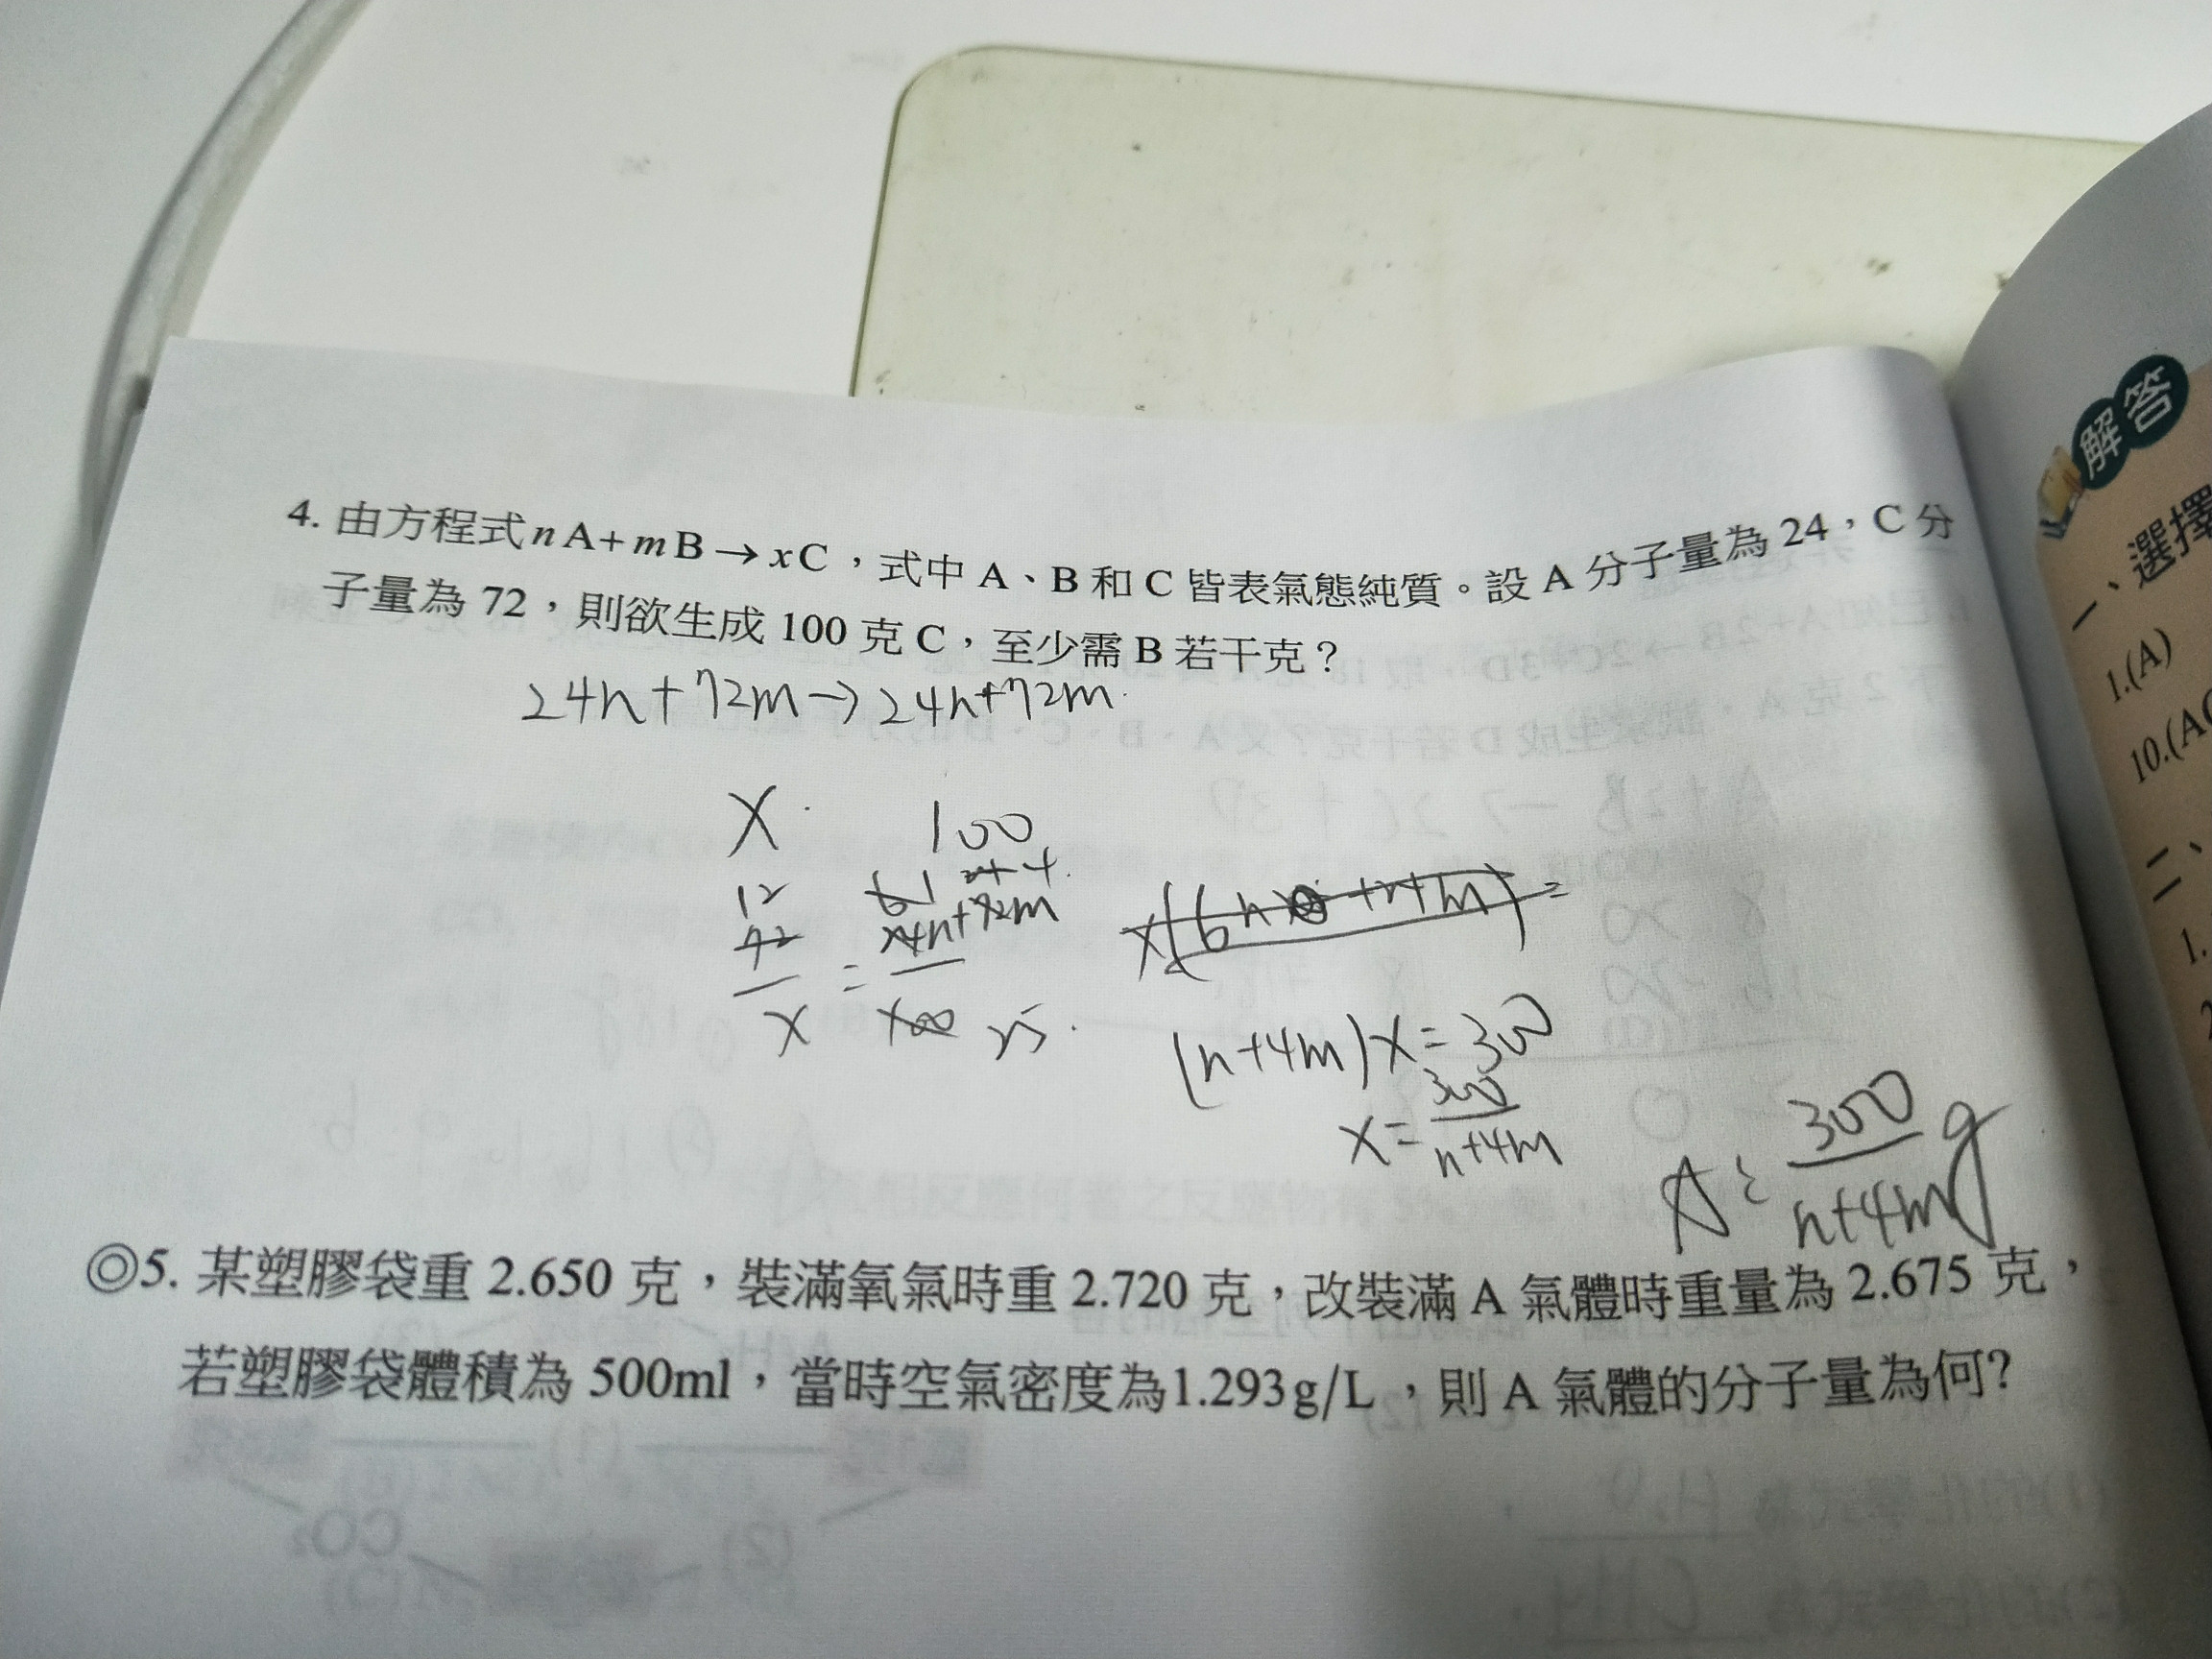 4. 由方程式nA+mB→xC，式中 A、B 和 C 皆表氣態純質。設 A 分子量為 24，C 分
子量為 72，則欲生成 100 克 C，至少需 B 若干克？
24n+72m→24n+72m
x 100
12
72
x
=
24n+72m
100 25
(n+4m)x=300
x=300/n+4m
A: 300/n+4m g
◎5. 某塑膠袋重 2.650 克，裝滿氧氣時重 2.720 克，改裝滿 A 氣體時重量為 2.675 克，
若塑膠袋體積為 500ml，當時空氣密度為1.293g/L，則 A 氣體的分子量為何?
解答
一、選擇
1.(A)
10.(A
二、
1.